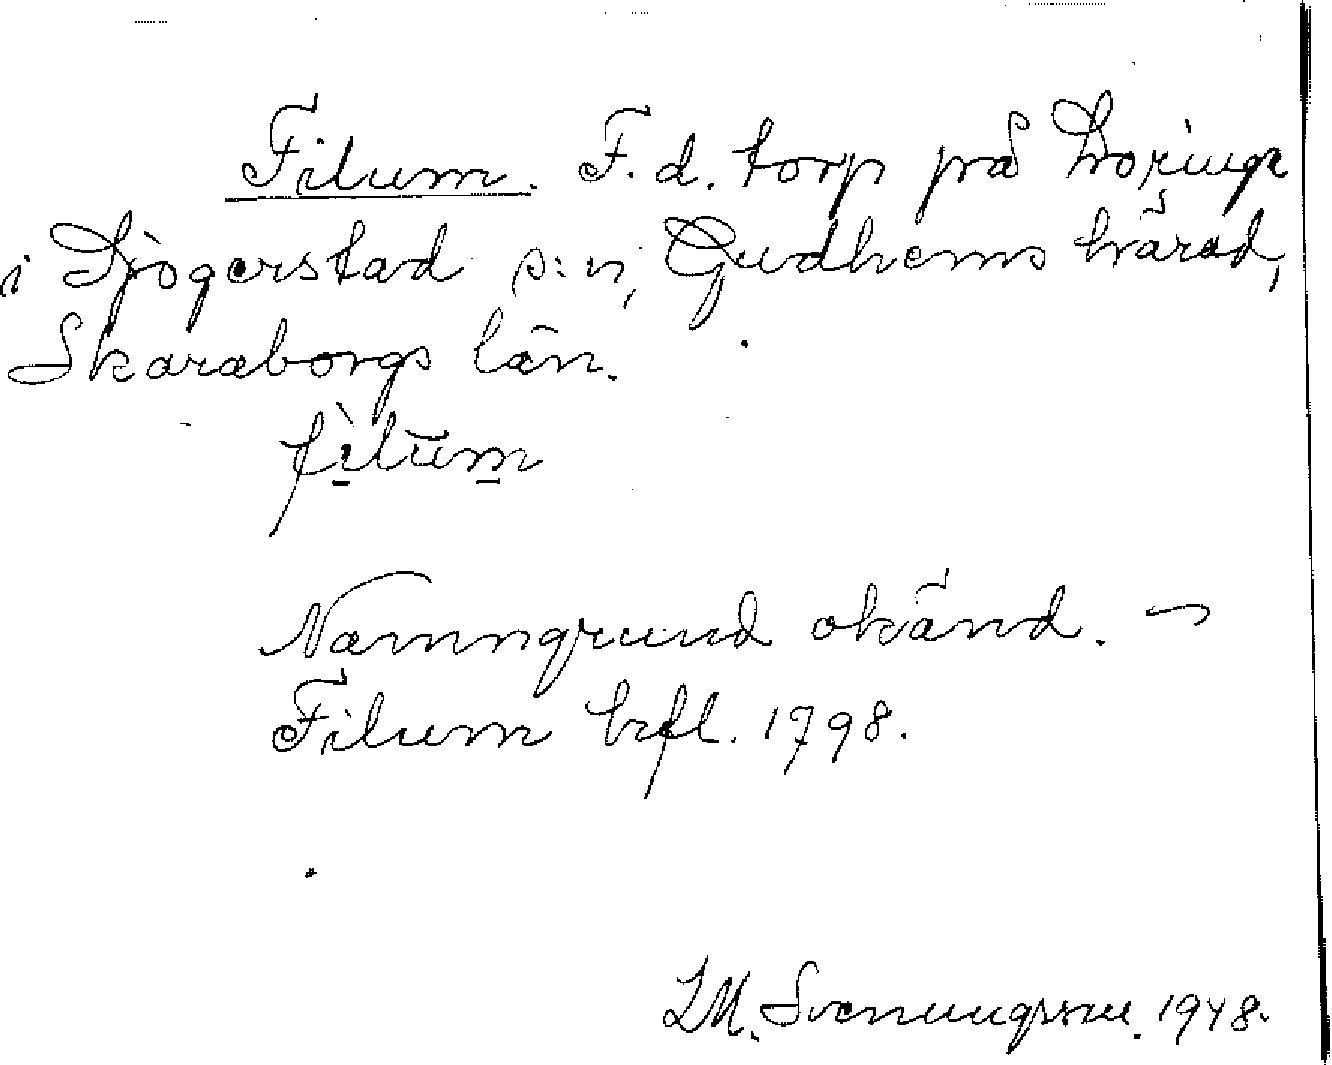 Filum. F. d. torp på
i Sjögerstad s:n, Gudhems härad,
Skaraborgs län.
filum
Namngrund okänd. —
Filum hfl. 1798.
L M. Svenungsson. 1948.